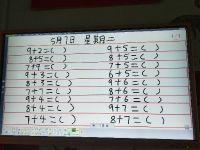 5月7日 星期二
9+2=( ) 9+5=( )
8+5=( ) 8+5=( )
7+9=( ) 7+5=( )
9+3=( ) 6+5=( )
8+3=( ) 9+6=( )
7+7=( ) 8+6=( )
9+4=( ) 7+6=( )
8+4=( ) 9+7=( )
7+4=( ) 8+7=( )